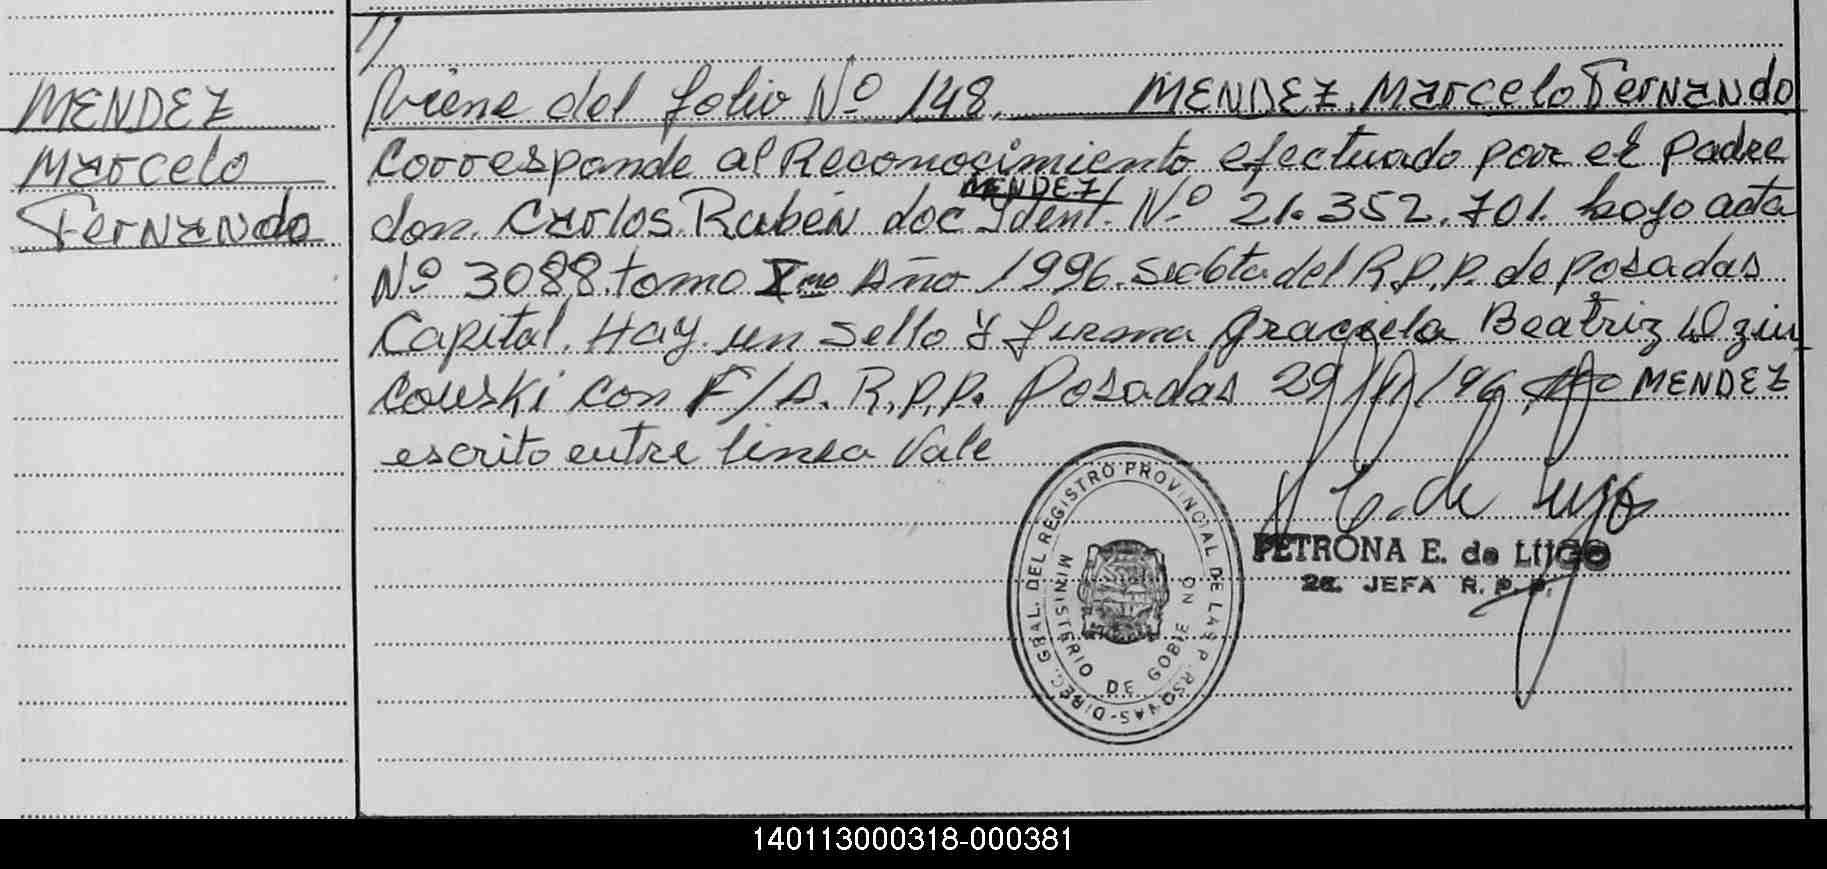 MENDEZ
Marcelo
Fernando
//
Viene del folio Nº 148. MENDEZ, Marcelo Fernando
Corresponde al Reconocimiento efectuado por el padre
MENDEZ/
don. Carlos Rubén doc Ident. Nº 21.352.701. bajo acta
Nº 3088 tomo Xmo Año 1996. Secta del R.P.P. de Posadas
Capital. Hay un sello y firma Graciela Beatriz
couski con F/A. R.P.P. Posadas 29/11/96 MENDEZ
escrito entre linea Vale
E. de Lugo
PETRONA E. de LUGO
2a. JEFA R. P. P.
DIREC. GRAL. DEL REGISTRO PROVINCIAL DE LAS P RSONAS-
MINISTERIO DE GOBIE NO
140113000318-000381